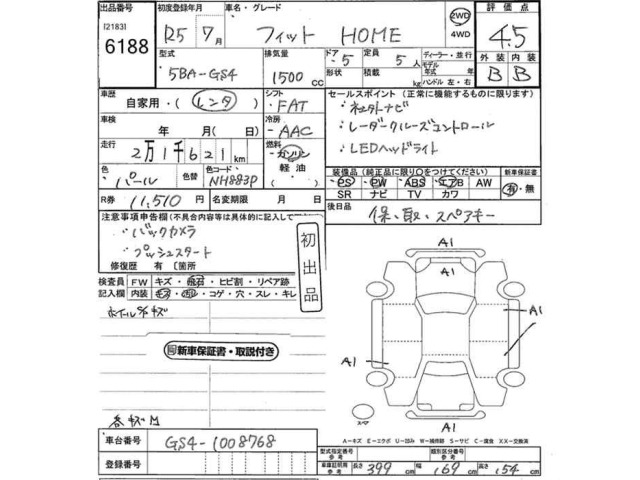 出品番号
[2183]
6188
初度登録年月
R5 7月
車名・グレード
フィット HOME
2WD
4WD
評価点
4.5
外装 内装
B B
型式
5BA-GS4
排気量
1500 cc
ドア 5
形状
定員 5人
積載 kg
ディーラー・並行
モデル年式 年式
ハンドル 左・右
車歴
自家用・(レンタ)
シフト
FAT
セールスポイント (正常に機能するものに限ります)
・レーダークルーズコントロール
・LEDヘッドライト
車検
年 月(日)
冷房
AAC
走行
2万1千621km
燃料
ガソリン
軽油
色
パール
色替
色コード
NH883P
装備品 (純正品に限り○をつけてください)
PS PW ABS エアB AW
SR ナビ TV カワ
新車保証書
有・無
R券 11,510円
名変期限 月 日
後日品
保、取、スペアキー
注意事項申告欄(不具合内容等は具体的に記入して
・バックカメラ
・プッシュスタート
修復歴 有 〔箇所
初出品
検査員記入欄
FW キズ・飛石・ヒビ割・リペア跡
内装 コゲ・穴・スレ・キレ
ホイールキズ
新車保証書・取説付き
A1
A1
A1
A1
スペア
A-キズ E-エクボ U-凹み W-補修跡 S-サビ C-腐食 XX-交換済
車台番号
GS4-1008768
登録番号
型式指定番号 参考
類別区分番号 参考
車庫証明用 参考
長さ 399 cm
幅 169 cm
高さ 154 cm